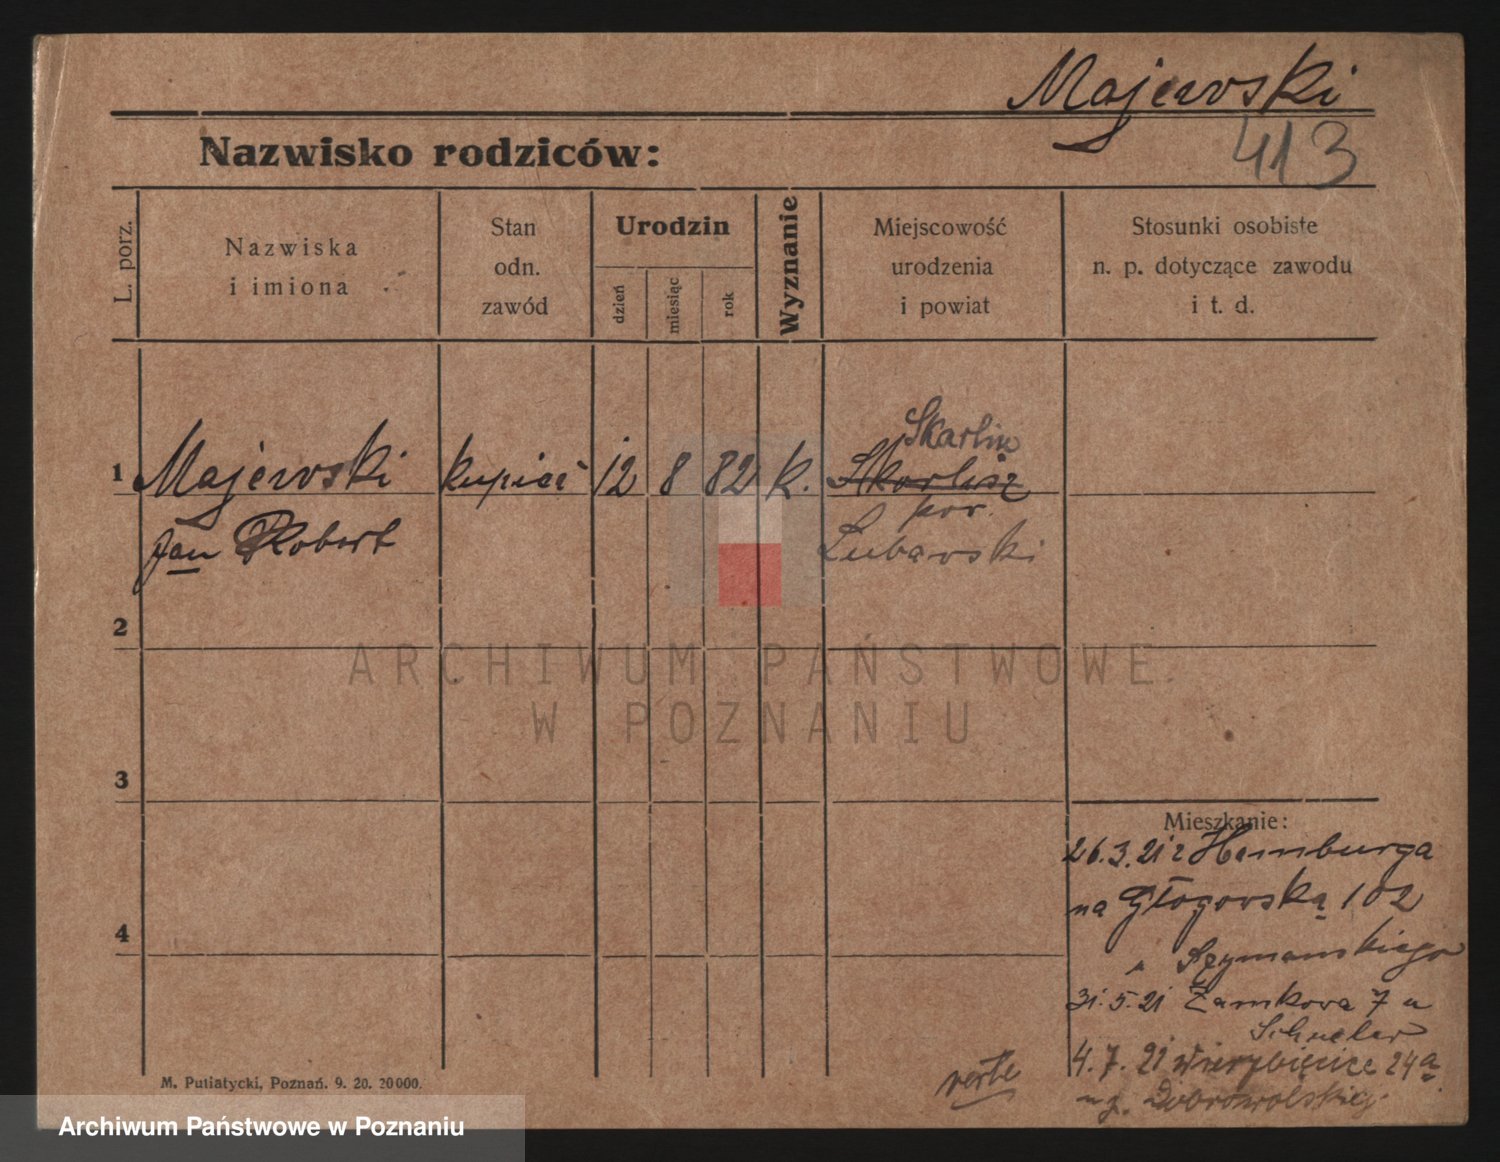 Majewski
413
Nazwisko rodziców:
L. porz.
Nazwiska
i imiona
Stan
odn.
zawód
Urodzin
dzień
miesiąc
rok
Wyznanie
Miejscowość
urodzenia
i powiat
Stosunki osobiste
n. p. dotyczące zawodu
i t. d.
Skarlin
1 Majewski kupiec 12 8 82 k. Skarlisz
Jan Robert
pow.
Lubawski
2
ARCHIWUM PAŃSTWOWE
W POZNANIU
3
Mieszkanie:
26.3.21 z Hamburga
na Głogowską 102
4
u Szymańskiego
31.5.21 Zamkowa 7 u
4.7.21 Wierzbięcice 24a
Dobrowolskiej
verte
M. Putiatycki, Poznań. 9. 20. 20000.
Archiwum Państwowe w Poznaniu